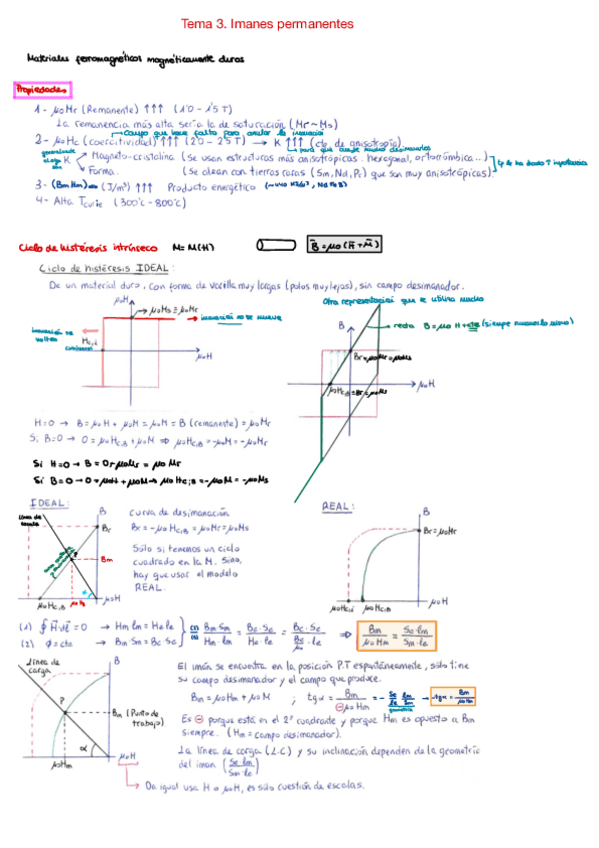 Tema 3. Imanes permanentes
Materiales ferromagnéticos magnéticamente duros
Propiedades
1- μoMr (Remanente) ↑↑↑ (1'0 - 1'5 T)
La remanencia más alta sería la de saturación (Mr ~ Ms)
Campo que hace falta para anular la imanación
2- μoHc (coercitividad) ↑↑↑ (2'0 - 2'5 T) → K ↑↑↑ (cte. de anisotropía)
K
Magneto-cristalina (Se usan estructuras más anisotrópicas. hexagonal, ortorrómbica...)
Forma. (Se dopan con tierras raras (Sm, Nd, Pr) que son muy anisotrópicas).
3- (BmHm) (J/m³) ↑↑↑ Producto energético
4- Alta Tcurie (300°C - 800°C)
Ciclo de histéresis intrínseco M = M(H)
B = μo(H + M)
Ciclo de histéresis IDEAL:
De un material duro, con forma de varilla muy largas (polos muy lejos), sin campo desimanador.
Otra representación que se utiliza mucho
μoM
→ μoMs = μoMr
imanación no se mueve
Hc,i
μoH
B
recta B = μoH + cte
Br = μoMr = μoMs
μoH
H=0 → B = μoH + μoM = μoM = B (remanente) = μoMr
Si B=0 → 0 = μoHc,B + μoM ⇒ μoHc,B = -μoM = -μoMr
Si H=0 → B = 0 + μoMr = μoMr
Si B=0 → 0 = μoH + μoM → μoHc,B = -μoM = -μoMs
IDEAL:
REAL:
línea de
B
Br
Bm
μoHc,B
μoH
curva de desimanación
Br = -μoHc,B = μoMr = μoMs
Sólo si tenemos un ciclo
cuadrado en la M. Sino,
hay que usar el modelo
REAL.
B
Br = μoMr
μoHc,i
μoHc,B
μoH
(1) ∮ H dl = 0 → Hm lm = He le
(2) φ = cte → Bm Sm = Be Se
Bm Sm / Hm lm = Be Se / He le = Be Se / (Be/μo) le ⇒ Bm / μoHm = Se lm / Sm le
línea de
carga
B
P
Bm (Punto de
trabajo)
α
μoHm
μoH
El imán se encuentra en la posición P.T espontáneamente, sólo tiene
su campo desimanador y el campo que produce.
Bm = μoHm + μoM ; tgα = Bm / ⊖ μoHm = - Se lm / Le Sm → -tgα = Bm / μoHm
geometría
Es ⊖ porque está en el 2º cuadrante y porque Hm es opuesto a Bm
siempre. (Hm = campo desimanador).
La línea de carga (L.C) y su inclinación dependen de la geometría
del iman (Se lm / Sm le)
Da igual usa H o μoH, es sólo cuestión de escalas.